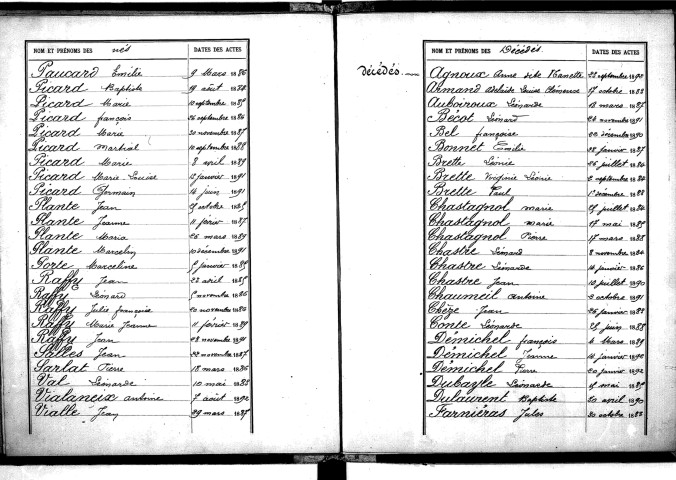 NOM ET PRÉNOMS DES nés DATES DES ACTES
Paucard Emilie 9 Mars 1886
Picard Baptiste 19 août 1884
Picard Marie 10 septembre 1885
Picard françois 26 septembre 1886
Picard Marie 30 novembre 1887
Picard Martial 10 septembre 1888
Picard Marie 8 avril 1889
Picard Marie Louise 12 janvier 1891
Picard Germain 14 juin 1891
Plante Jean octobre
Plante Jeanne 11 février 1887
Plante Maria 26 mars 1889
Plante Marcelin 10 décembre 1891
Porte Marceline janvier
Raffy Jean 22 avril
Raffy Léonard novembre 1886
Raffy Julie françoise 20 novembre 1886
Raffy Marie Jeanne 11 février 1889
Raffy Jean 28 novembre 1891
Salles Jean 22 novembre 1887
Sarlat Pierre 18 mars 1886
Val Léonarde 10 mai 1888
Vialaneix antoine 7 août 1892
Vialle Jean 29 mars 1887
Décédés
NOM ET PRÉNOMS DES Décédés DATES DES ACTES
Agnoux Anne dite Nanette 22 septembre 1890
Armand Adelaïde Louise Clémence 17 octobre 1888
Auboiroux Léonarde 18 mars 1887
Bécot Léonard 24 novembre 1891
Bel françoise 22 décembre 1890
Bonnet Emilie 28 janvier 1887
Brette Léonie 26 juillet 1884
Brette Virginie Léonie 2 septembre 1884
Brette Paul 1er décembre 1888
Chastagnol marie juillet 1884
Chastagnol marie 17 mai
Chastagnol Pierre 17 mars 1888
Chastre Léonard 8 novembre 1884
Chastre Léonarde 14 janvier 1886
Chastre Jean 10 juillet 1890
Chaumeil antoine 3 octobre 1891
Chèze Jean 26 janvier 1888
Conte Léonarde juin 1888
Démichel françois 4 Mars 1889
Démichel Jeanne 14 janvier 1890
Démichel Pierre 20 janvier 1892
Dubayle Léonarde mai
Dulaurent Baptiste 30 avril 1890
Farniéras Jules 30 octobre 1888